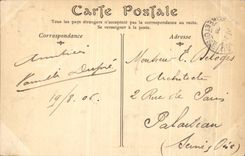 Carte Postale
Tous les pays étrangers n'acceptent pas la correspondance au recto.
Se renseigner à la poste.
Correspondance
Adresse
Amitiés
19/8.06.
Monsieur E.
Architecte
2 Rue de Paris
Palaiseau
(Seine & Oise)